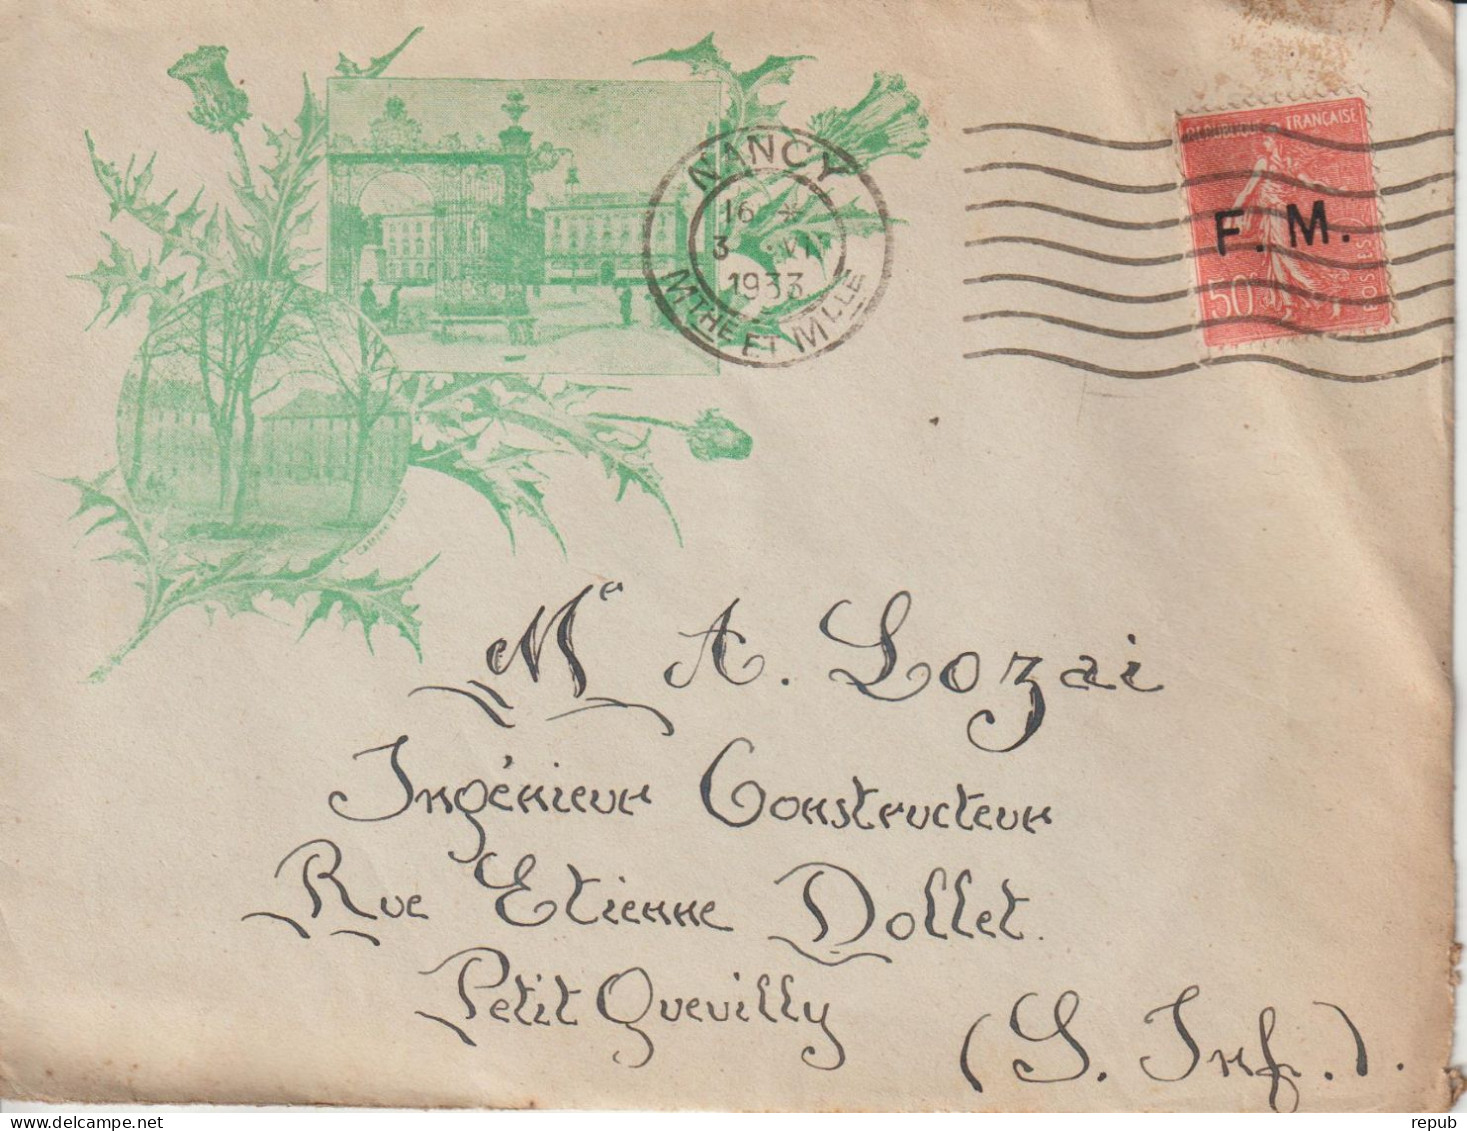 NANCY
16 *
3 XII
1933
MTHE ET MLLE
FRANÇAISE
F. M.
50c
POSTES
Mr A. Lozai
Ingénieur Constructeur
Rue Etienne Dollet.
Petit Quevilly
(S. Inf.).
repub